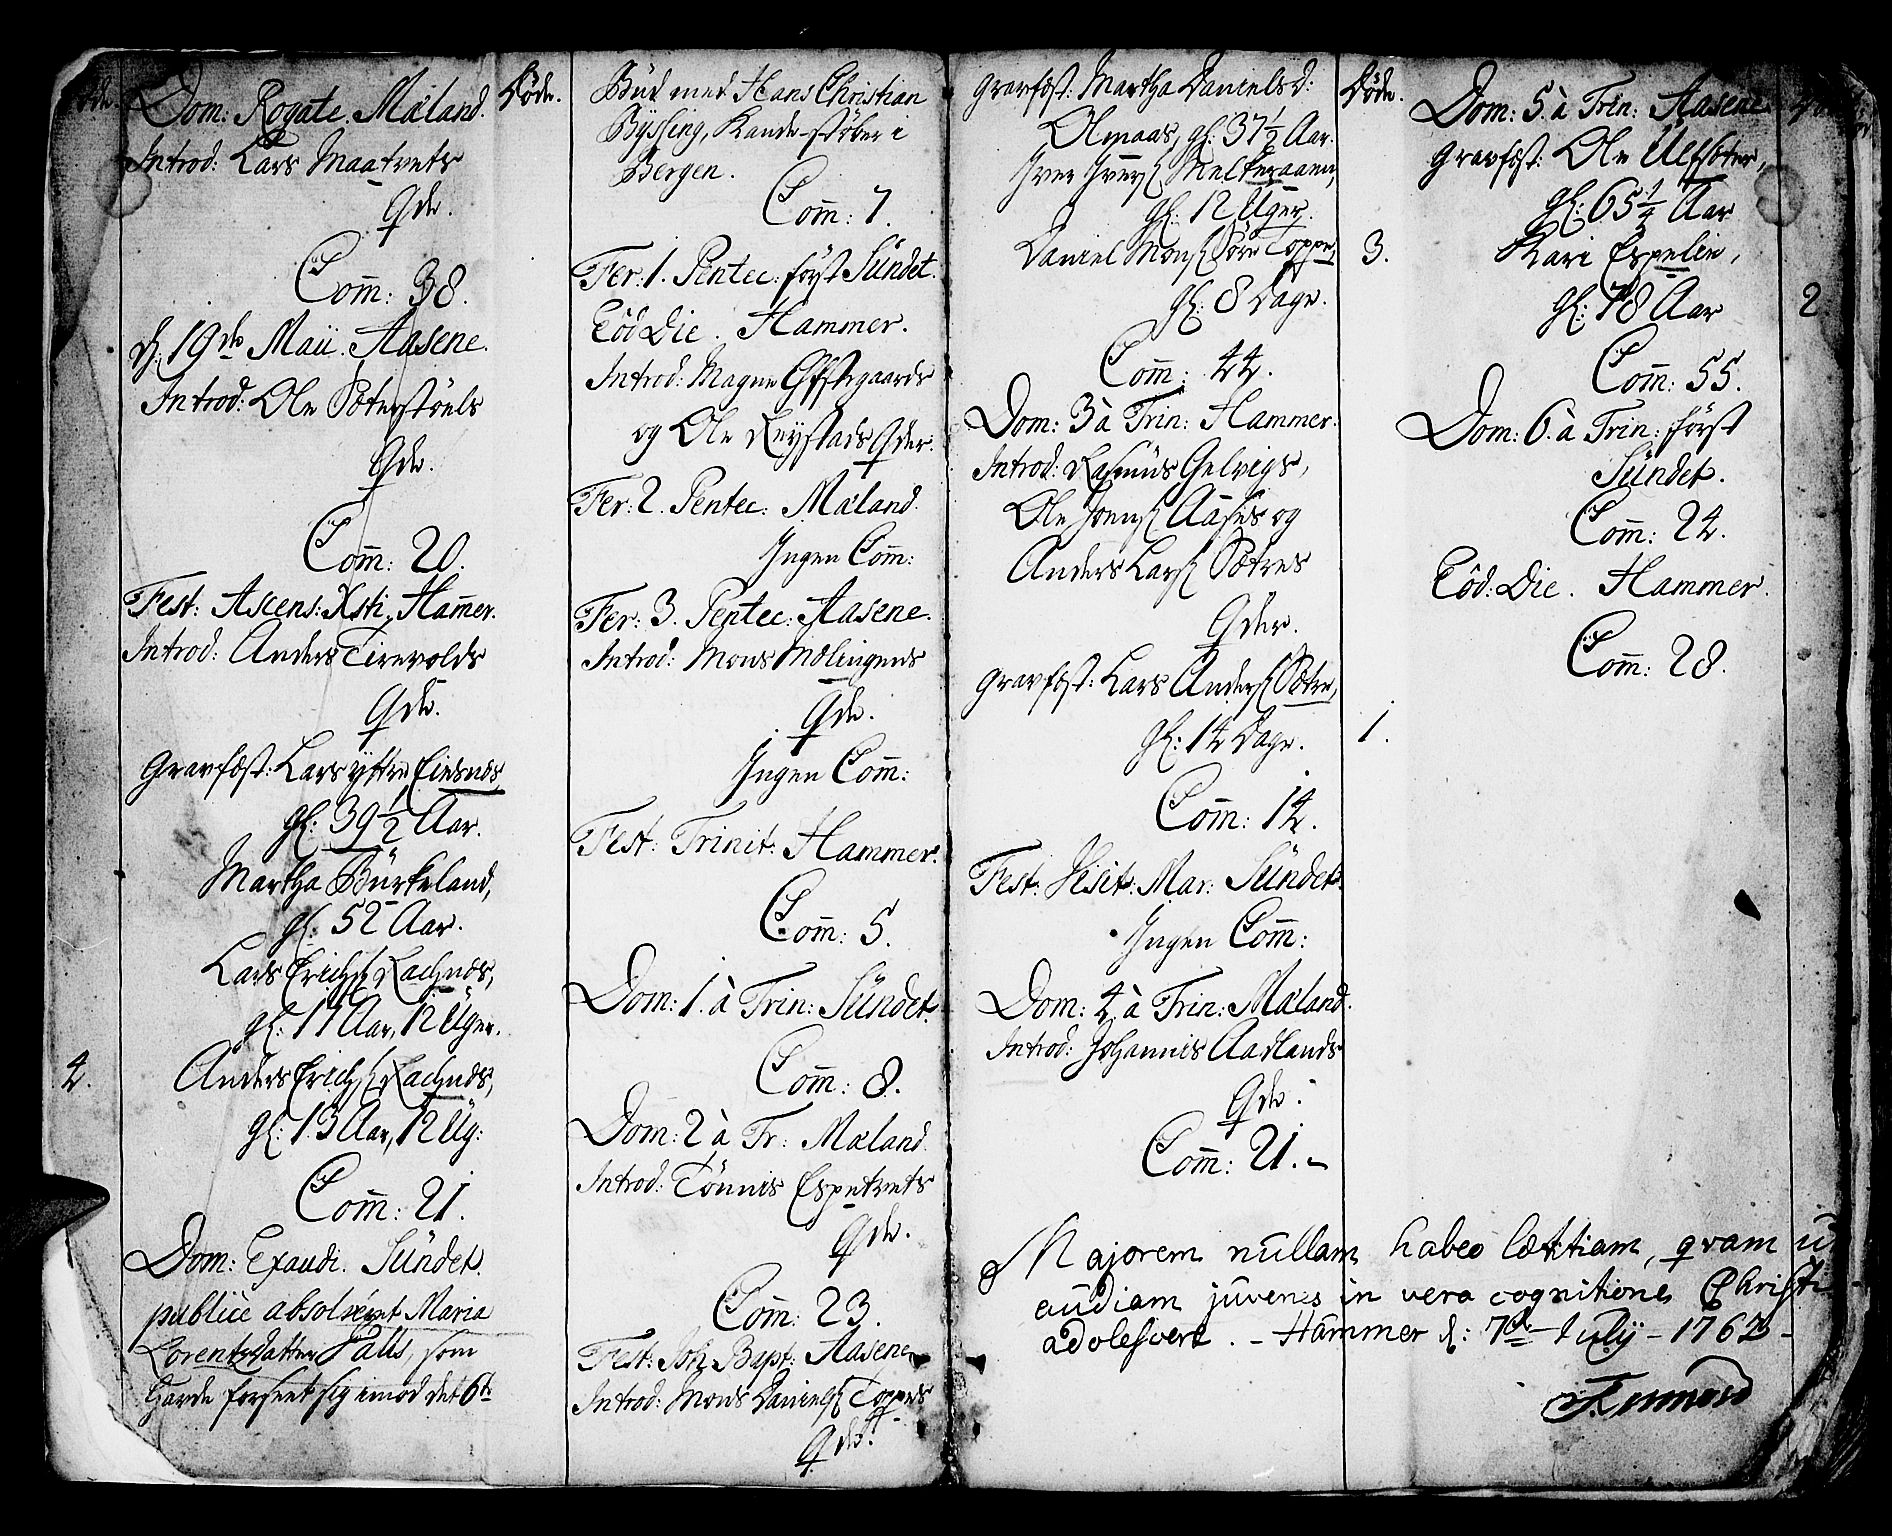 Døde.
Dom: Rogate. Mæland.
Introd: Lars Maatvets
Qde.
Com̄: 38.
d. 19de Maii. Aasene.
Introd: Ole Sæterstöels
Qde.
Com̄: 20.
Fest: Ascens: Xsti. Ham̄er.
Introd: Anders Tirevolds
Qde.
Gravfæst: Lars yttre Eiesnæs,
gl: 39 1/2 Aar.
Martha Bürkeland,
gl: 52 Aar.
Lars Erichs. Rachnæs,
gl: 17 Aar, 12 Uger.
4. Anders Erichs. Rachnæs,
gl: 13 Aar, 12 Ug:
Com̄: 21.
Dom: Exaudi. Sündet.
publicè absolveret Maria
Lorentzdatter Falls, som
hafde forseet sig imod det 6te
Døde.
Bud med Hans Christian
Byssing, Kande-stöber i
Bergen.
Com̄: 7.
Fer: 1. Pentec: först Sündet.
Eod Die. Hammer.
Introd: Magne Effstegaards
og Ole Reystads Qder.
Fer: 2. Pentec: Mæland.
Ingen Com̄:
Fer: 3. Pentec: Aasene.
Introd: Mons Mælingens
Qde.
Ingen Com̄:
Fest: Trinit: Hammer.
Com̄: 5.
Dom: 1. à Trin: Sündet.
Com̄: 8.
Dom: 2 à Tr: Mæland.
Introd: Tönnis Espetvets
Qde.
Com̄: 23.
Fest: Joh: Bapt: Aasene
Introd: Mons Daniels. Toppes
Qde.
Gravfæst: Martha Danielsd:
Olmaas, gl: 37 1/2 Aar.
Iver Ivers. Melkeraaen,
gl: 12 Uger.
Daniel Mons. Toppe,
gl: 8 Dage.
Døde.
3.
Com̄: 44.
Dom: 3 à Trin: Hammer.
Introd: Rasmus Gelvigs,
Ole Joens. Aases og
Anders Lars. Sætres
Qder.
Gravfæst: Lars Anders. Sætre,
gl: 14 Dage.
1.
Com̄: 14.
Fest: Visit: Mar: Sündet.
Ingen Com̄:
Dom: 4 à Trin: Mæland.
Introd: Johannis Aadlands
Qde.
Com̄: 21.
Dom: 5. à Trin: Aasene
Gravfæst: Ole Ulfsæter,
gl: 65 1/4 Aar
Kari Espelie,
gl: 78 Aar
2
Com̄: 55.
Dom: 6. à Trin: först
Sündet.
Com̄: 24.
Eod: Die. Hammer.
Com̄: 28.
Majorem nullam habeo lætitiam, qvam ut
audiam juvenes in vera cognitione Christi
adolescere. - Hammer d: 7de July - 1763 -